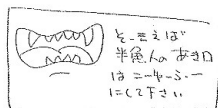 そー言えば
半魚人のあき口
はこーゆーふー
にして下さい